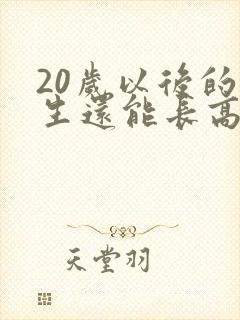 20歲以後的
生還能長高
天堂羽